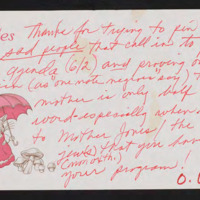 es Thanks for trying to pin
sad people that call in to
agenda (6/2) and proving o
(as "one note negros" say) t
mother is only half
word-especially when
to Mother Jones! The
that you have
(mouth)
your program!
O.